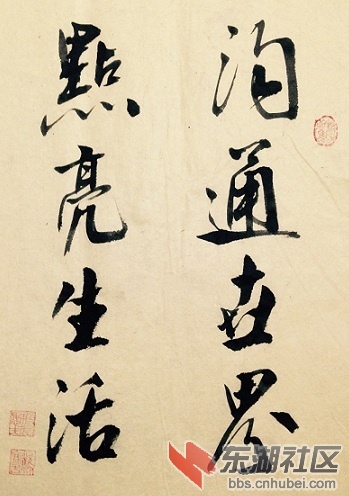 沟通世界
點亮生活
东湖社区
bbs.cnhubei.com